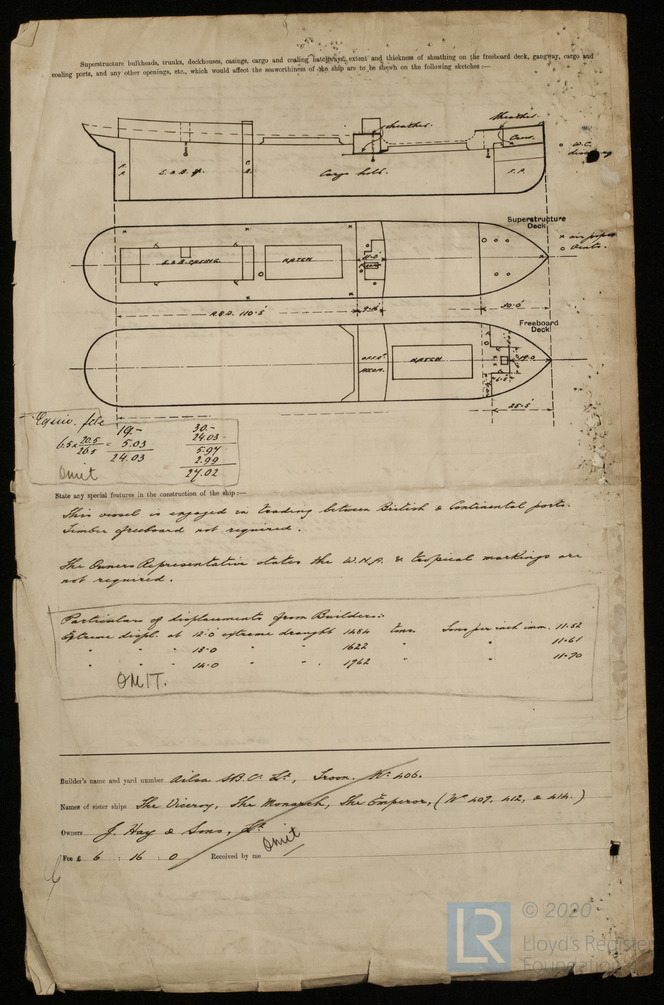 Superstructure bulkheads, trunks, deckhouses, casings, cargo and coaling hatchways, extent and thickness of sheathing on the freeboard deck, gangway, cargo and
coaling ports, and any other openings, etc., which would affect the seaworthiness of the ship are to be shewn on the following sketches :—
Cargo hold.
W.C.
Superstructure
Deck
E. & B. CASING
HATCH
air pipes
R.Q.D. 110·5'
30·0'
Freeboard
Deck
HATCH
25·5'
Equiv. fcle
19.—
30.—
6.5 × 20.5/26.5 = 5.03
24.03
24.03
5.97
2.99
27.02
Omit
State any special features in the construction of the ship :—
This vessel is engaged in trading between British & Continental ports.
Timber freeboard not required.
The Owners Representative states the W.N.A. & tropical markings are
not required.
Particulars of displacements from Builders:-
Extreme displ. at 12'0 extreme draught 1484 tons Tons per inch imm. 11·52
" " " 13-0 " " 1622 " " 11·61
" " " 14-0 " " 1762 " 11·70
OMIT.
Builder's name and yard number Ailsa S.B. Co. Lt., Troon. No. 406.
Names of sister ships The Viceroy, The Monarch, The Emperor, (Nos 407, 412, & 414.)
Owners J. Hay & Sons, Lt.
Fee £ 6 : 16 : 0 Received by me Omit
LR © 2020
Lloyd's Register
Foundation